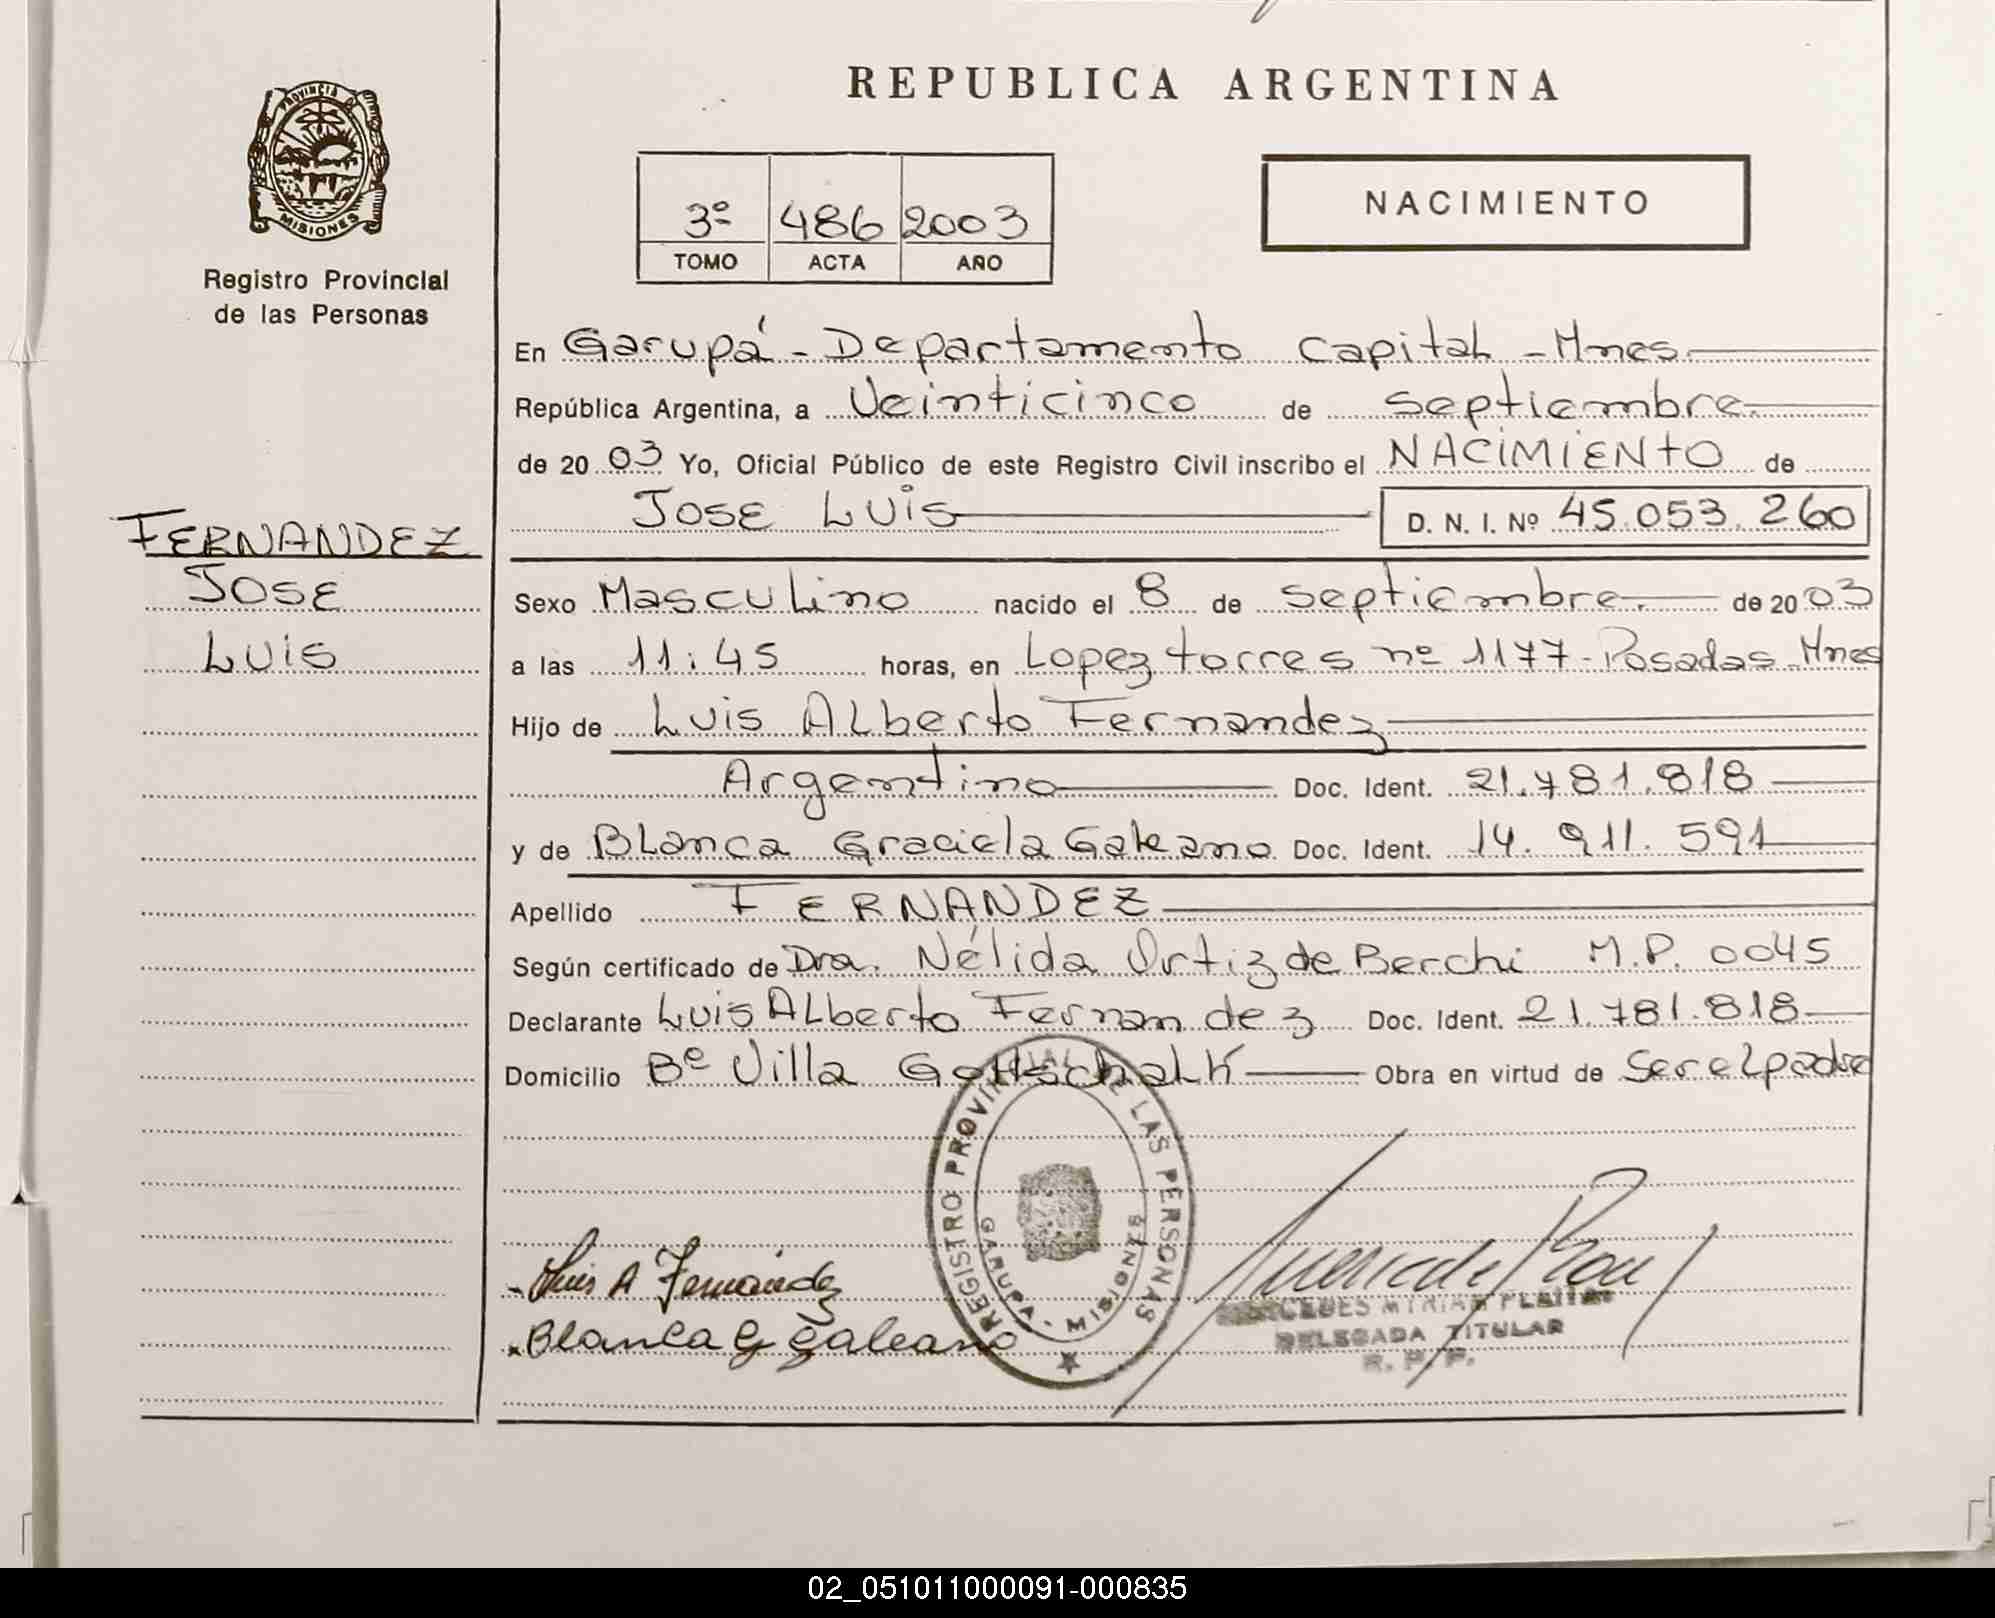 REPUBLICA ARGENTINA
PROVINCIA DE
MISIONES
Registro Provincial
de las Personas
3º 486 2003
TOMO ACTA AÑO
NACIMIENTO
En Garupá - Departamento Capital - Mnes.
República Argentina, a Veinticinco de septiembre.
de 2003 Yo, Oficial Público de este Registro Civil inscribo el NACIMIENTO de
JOSE LUIS D. N. I. Nº 45.053.260
FERNANDEZ
JOSE
LUIS
Sexo Masculino nacido el 8 de septiembre. de 2003
a las 11:45 horas, en Lopez torres nº 1177 - Posadas - Mnes
Hijo de Luis Alberto Fernandez
Argentino Doc. Ident. 21.781.818
y de Blanca Graciela Galeano Doc. Ident. 14.911.591
Apellido FERNANDEZ
Según certificado de Dra. Nélida Ortiz de Berchi M.P. 0045
Declarante Luis Alberto Fernandez Doc. Ident. 21.781.818
Domicilio Bº Villa Gottschalk Obra en virtud de ser el padre
REGISTRO PROVINCIAL DE LAS PERSONAS
GARUPA - MISIONES
- Luis A Fernández
Blanca G Galeano
MIRIAM
DELEGADA TITULAR
R. P. P.
02_051011000091-000835